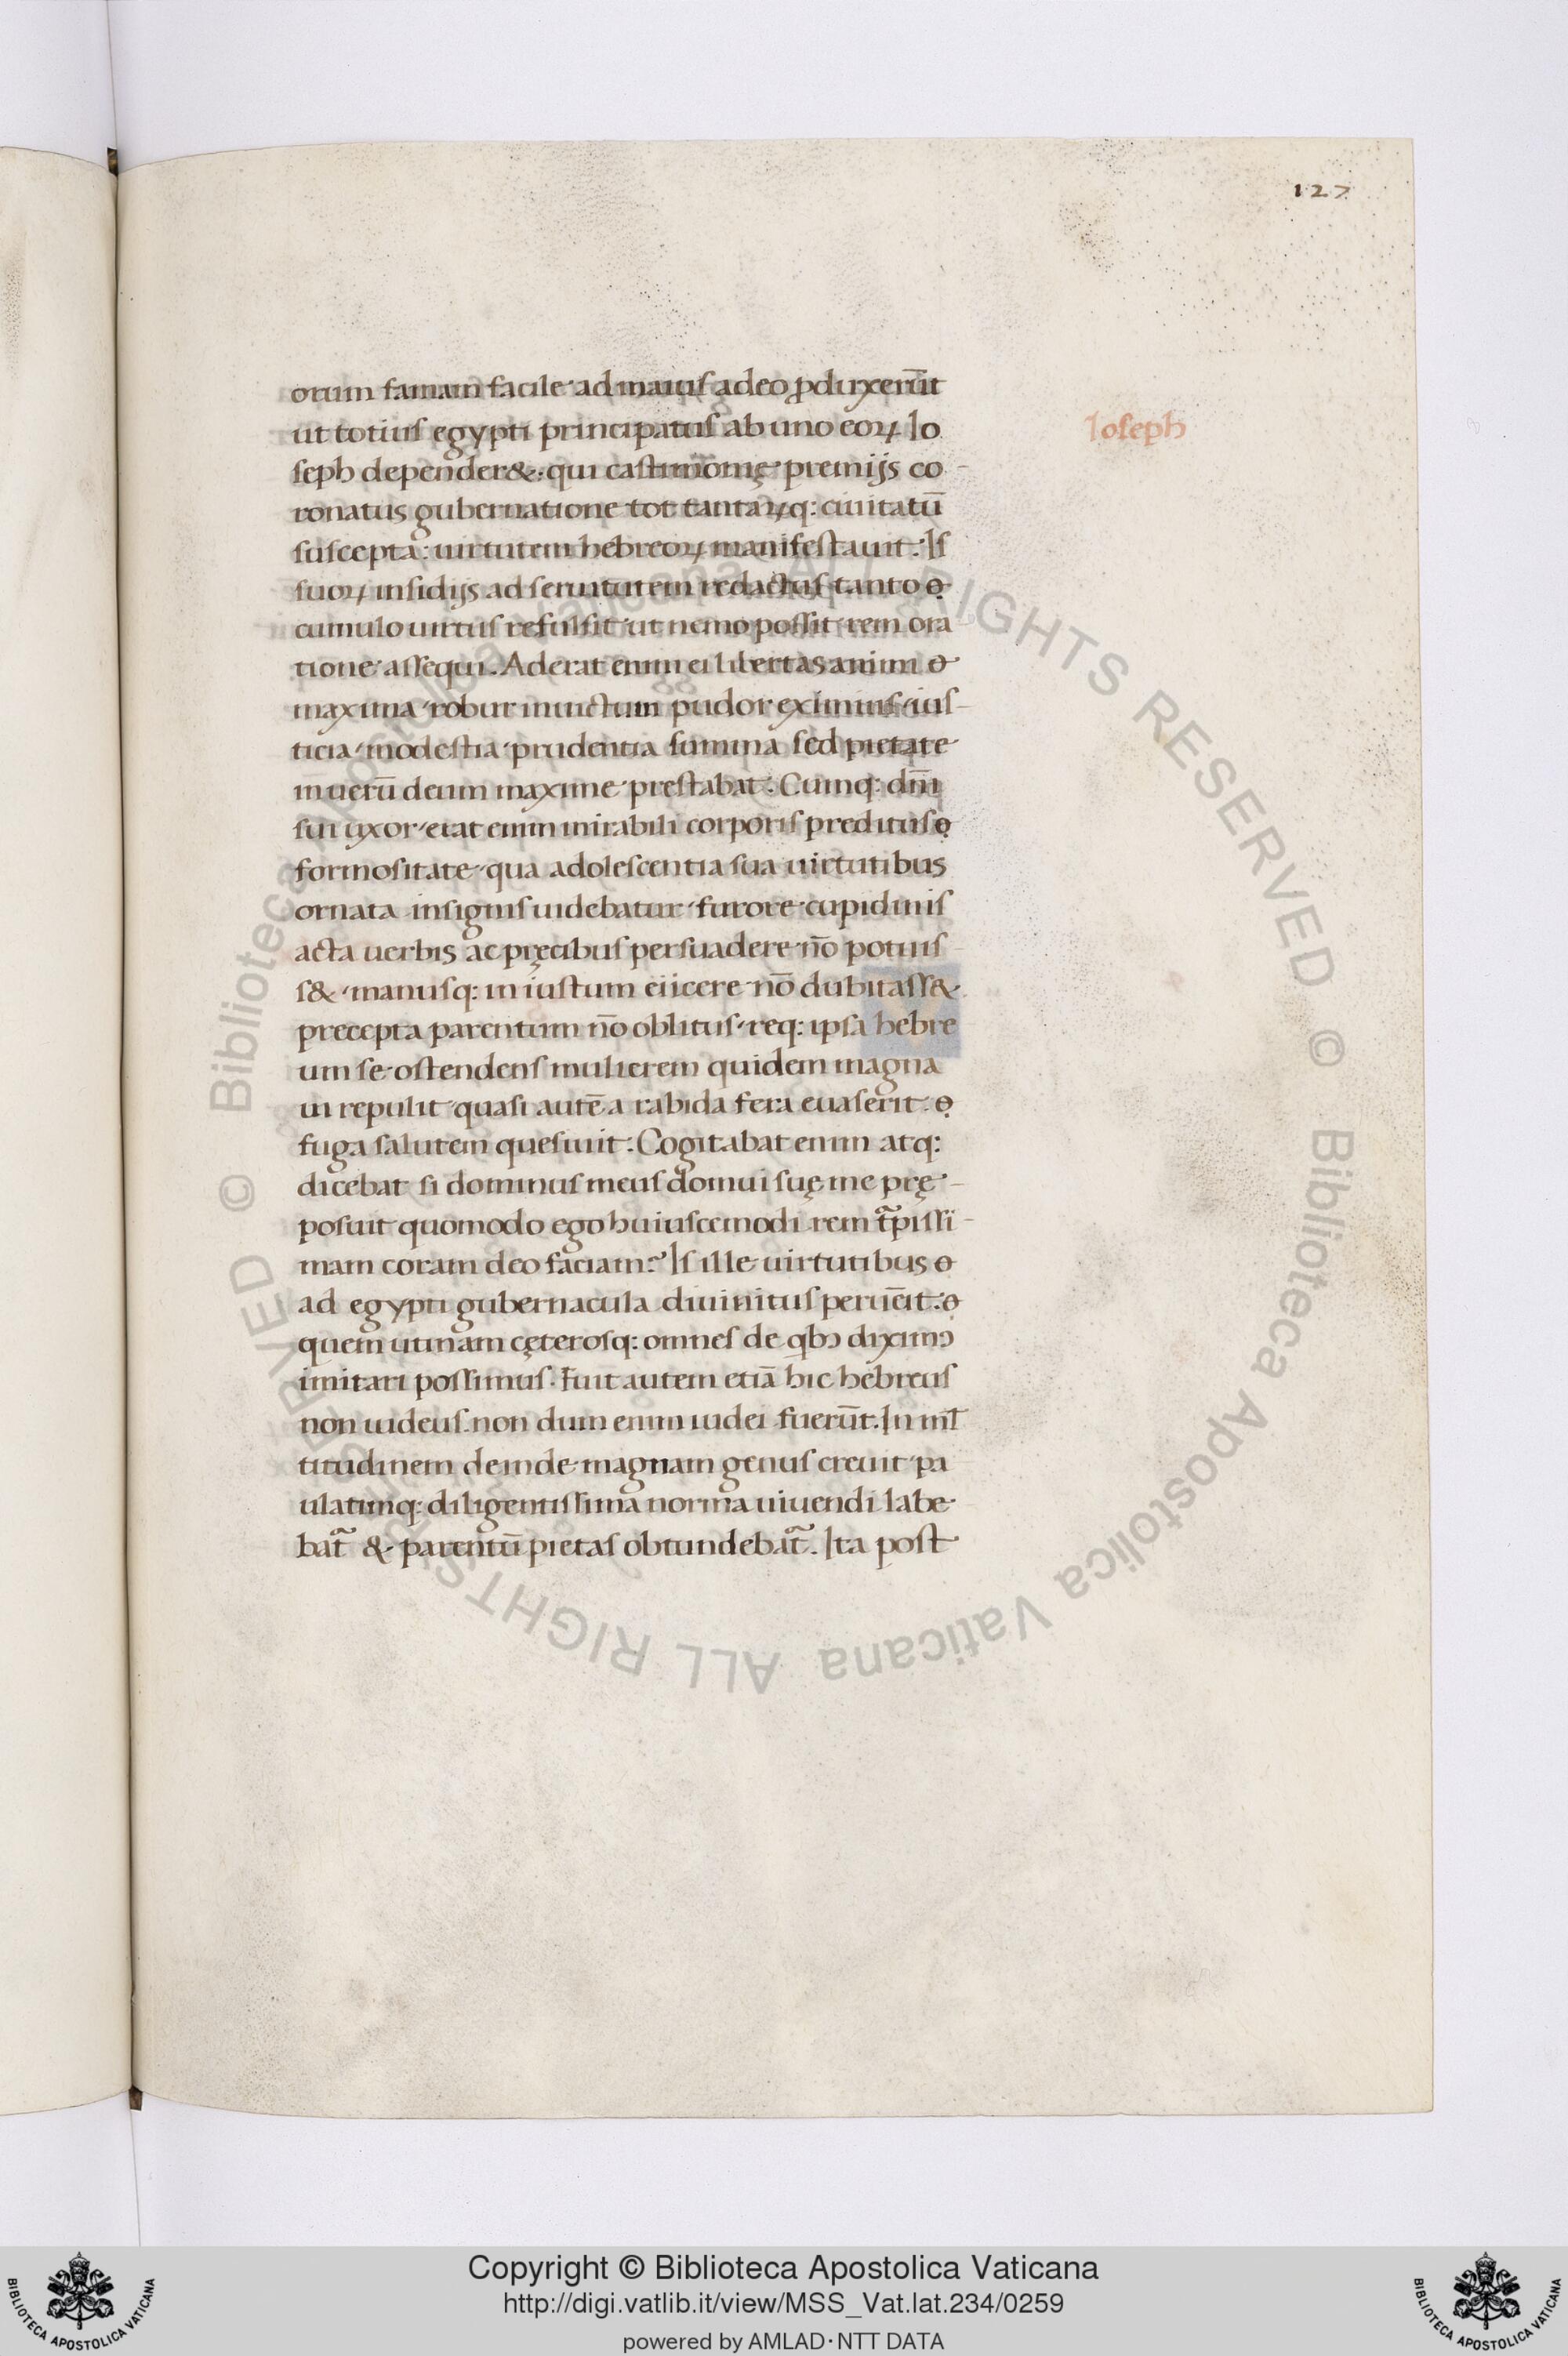 127
orum famam facile ad maius adeo ꝓduxerūt
ut totius egypti principatus ab uno eoꝝ Io
Ioseph
seph depender&: qui castimōnię premijs co-
ronatus gubernatione tot tantaꝝq: ciuitatū
suscepta: uirtutem hebreoꝝ manifestauit: Is
suoꝝ insidijs ad seruitutem redactus tanto
cumulo uirtus refulsit ut nemo possit rem ora
tione assequi. Aderat enim ei libertas animi
maxima robur inuictum pudor eximius ius-
ticia modestia prudentia summa sed pietate
in uerū deum maxime prestabat: Cumq: dn̄i
sui uxor erat enim mirabili corporis preditus
formositate qua adolescentia sua uirtutibus
ornata insignis uidebatur furore cupidinis
acta uerbis ac pręcibus persuadere nō potuis-
s& manusq: in iustum eiicere nō dubitass&
precepta parentum nō oblitus req: ipsa hebre
um se ostendens mulierem quidem magna
ui repulit quasi autē a rabida fera euaserit:
fuga salutem quesiuit: Cogitabat enim atq:
dicebat si dominus meus domui suę me prę-
posuit quomodo ego huiuscemodi rem t̃pissi-
mam coram deo faciam? Is ille uirtutibus
ad egypti gubernacula diuinitus peruēit:
quem utinam cęterosq: omnes de qbꝰ diximꝰ
imitari possimus. Fuit autem etiā hic hebreus
non iudeus. non dum enim iudei fuerūt. In ml̄
titudinem deinde magnam genus creuit pa
ulatimq: diligentissima norma uiuendi labe-
bat̃ & parentū pietas obtundebat̃. Ita post
Copyright © Biblioteca Apostolica Vaticana
http://digi.vatlib.it/view/MSS_Vat.lat.234/0259
powered by AMLAD·NTT DATA
BIBLIOTECA APOSTOLICA VATICANA
BIBLIOTECA APOSTOLICA VATICANA
© Biblioteca Apostolica Vaticana ALL RIGHTS RESERVED © Biblioteca Apostolica Vaticana ALL RIGHTS RESERVED